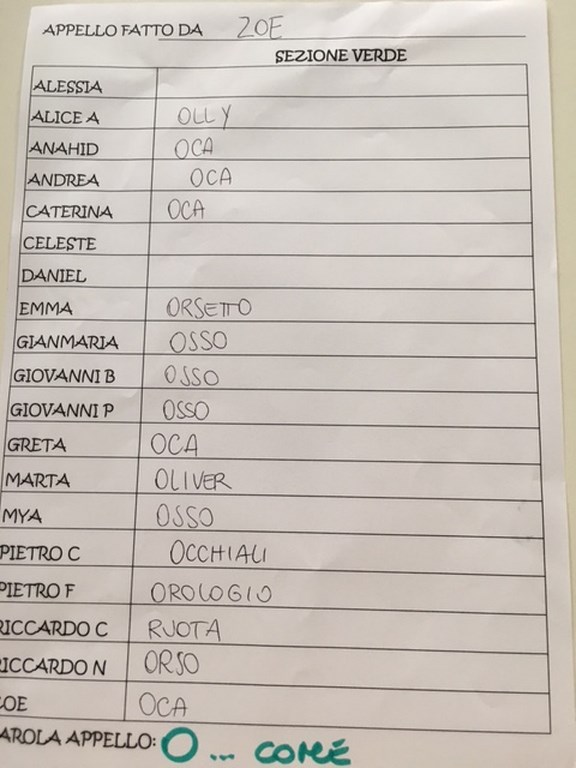 APPELLO FATTO DA ZOE
SEZIONE VERDE
ALESSIA
ALICE A OLLY
ANAHID OCA
ANDREA OCA
CATERINA OCA
CELESTE
DANIEL
EMMA ORSETTO
GIANMARIA OSSO
GIOVANNI B OSSO
GIOVANNI P OSSO
GRETA OCA
MARTA OLIVER
MYA OSSO
PIETRO C OCCHIALI
PIETRO F OROLOGIO
RICCARDO C RUOTA
RICCARDO N ORSO
OE OCA
AROLA APPELLO: O ... COME